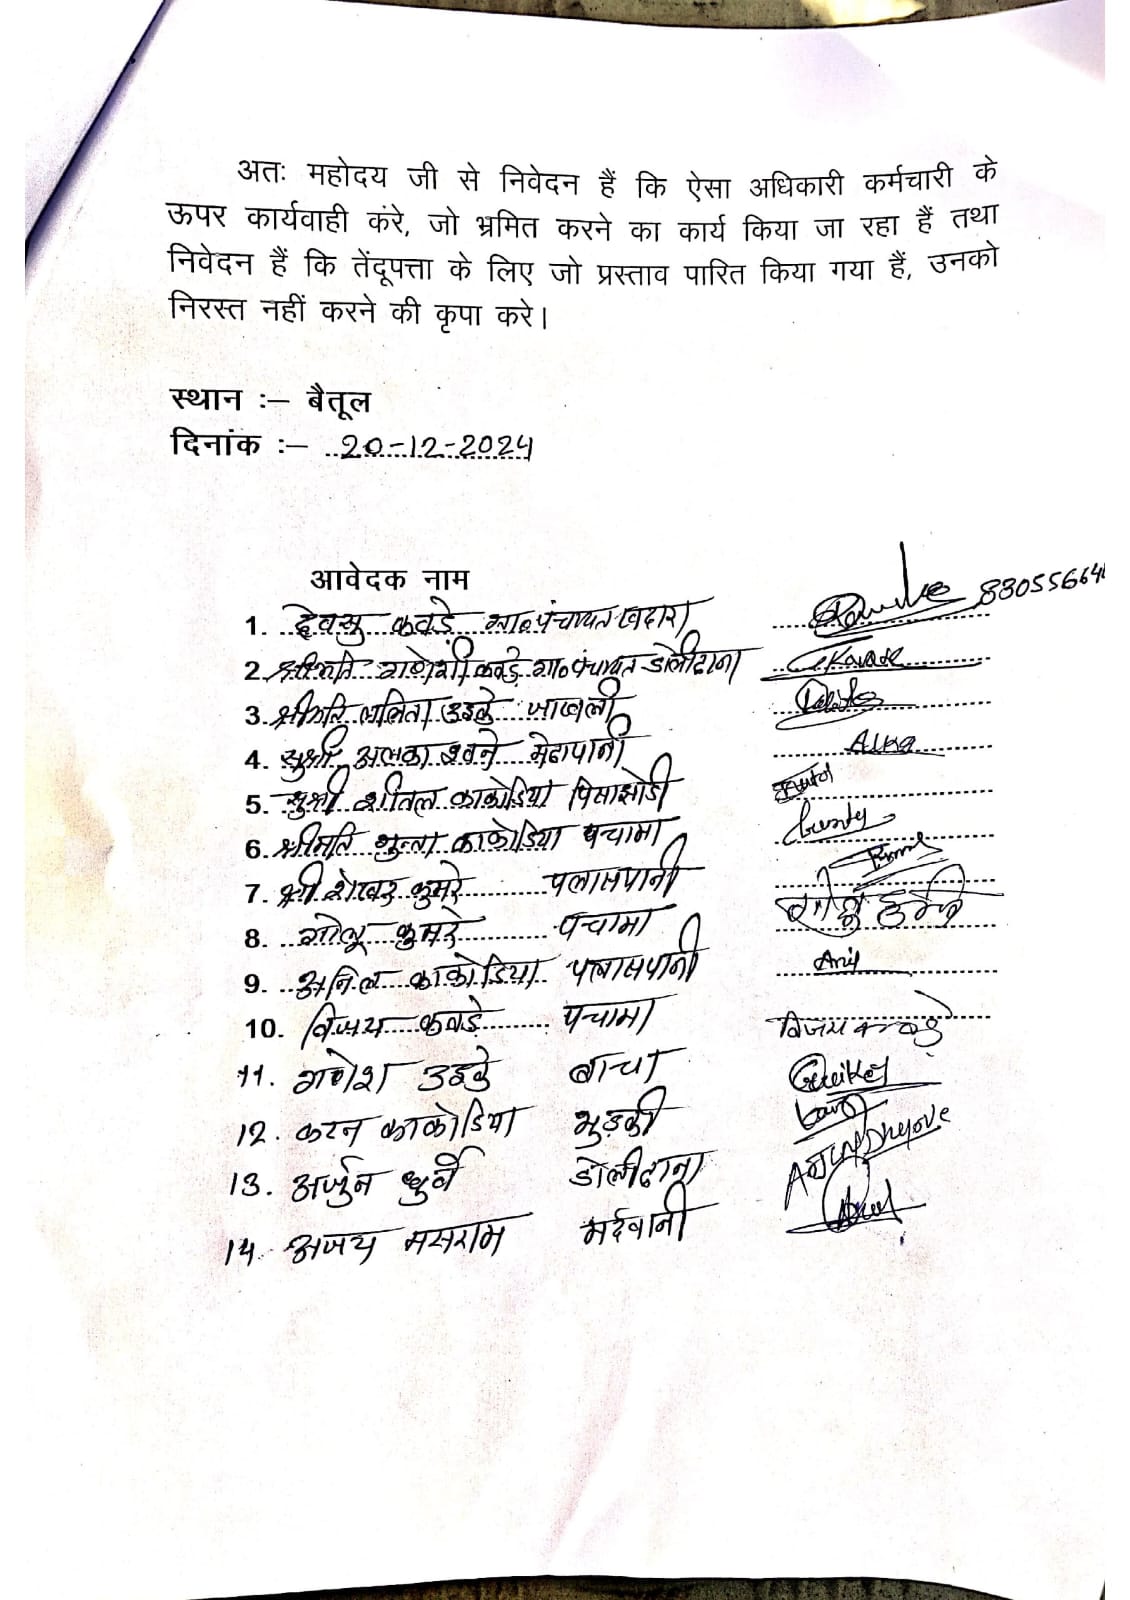 अतः महोदय जी से निवेदन हैं कि ऐसा अधिकारी कर्मचारी के
ऊपर कार्यवाही करें, जो भ्रमित करने का कार्य किया जा रहा हैं तथा
निवेदन हैं कि तेंदूपत्ता के लिए जो प्रस्ताव पारित किया गया हैं, उनको
निरस्त नहीं करने की कृपा करे।
स्थान :– बैतूल
दिनांक :– 20-12-2024
आवेदक नाम
1. देवसु कवडे ग्रा० पंचायत खदारा 83055664
2. श्रीमति गणेशी कवडे ग्रा० पंचायत डोलीढाना
3. श्रीमति ललिता उइके जाखली
4. सुश्री अलका धवने मेढापानी Alka
5. सुश्री शीतल काकोडिया पिसाझोडी
6. श्रीमति काकोडिया पंचामा
7. श्री शेखर कुमरे पलासपानी
8. गोलू कुमरे पंचामा
9. अनिल काकोडिया पलासपानी Anil
10. विजय कवडे पंचामा विजय कवडे
11. गणेश उइके बाचा
12. करन काकोडिया भुडकी
13. अर्जुन धुर्वे डोलीढाना
14. अजय मसराम मर्दवानी